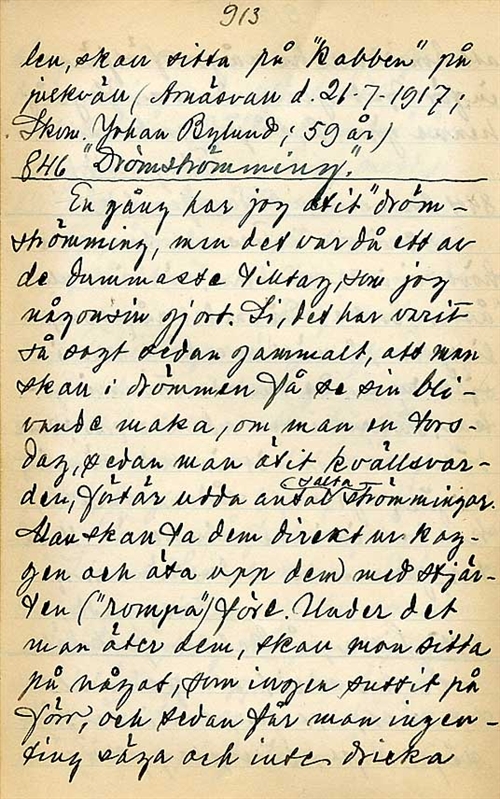 913
len, skall sitta på "kabben" på
julkväll (Arnäsvall d. 21-7-1917;
Skom. Johan Bylund; 59 år)
846 "Drömströmming".
En gång har jag ätit "dröm-
strömming, men det var då ett av
de dummaste tilltag, som jag
någonsin gjort. Si, det har varit
så sagt sedan gammalt, att man
skall i drömmen få se sin bli-
vande maka, om man en tors-
dag, sedan man ätit kvällsvar-
den, förtär udda antal salta strömmingar.
Man skall ta dem direkt ur kag-
gen och äta upp dem med stjär-
ten ("rompa") före. Under det
man äter dem, skall man sitta
på något, som ingen suttit på
förr, och sedan får man ingen-
ting säga och inte dricka